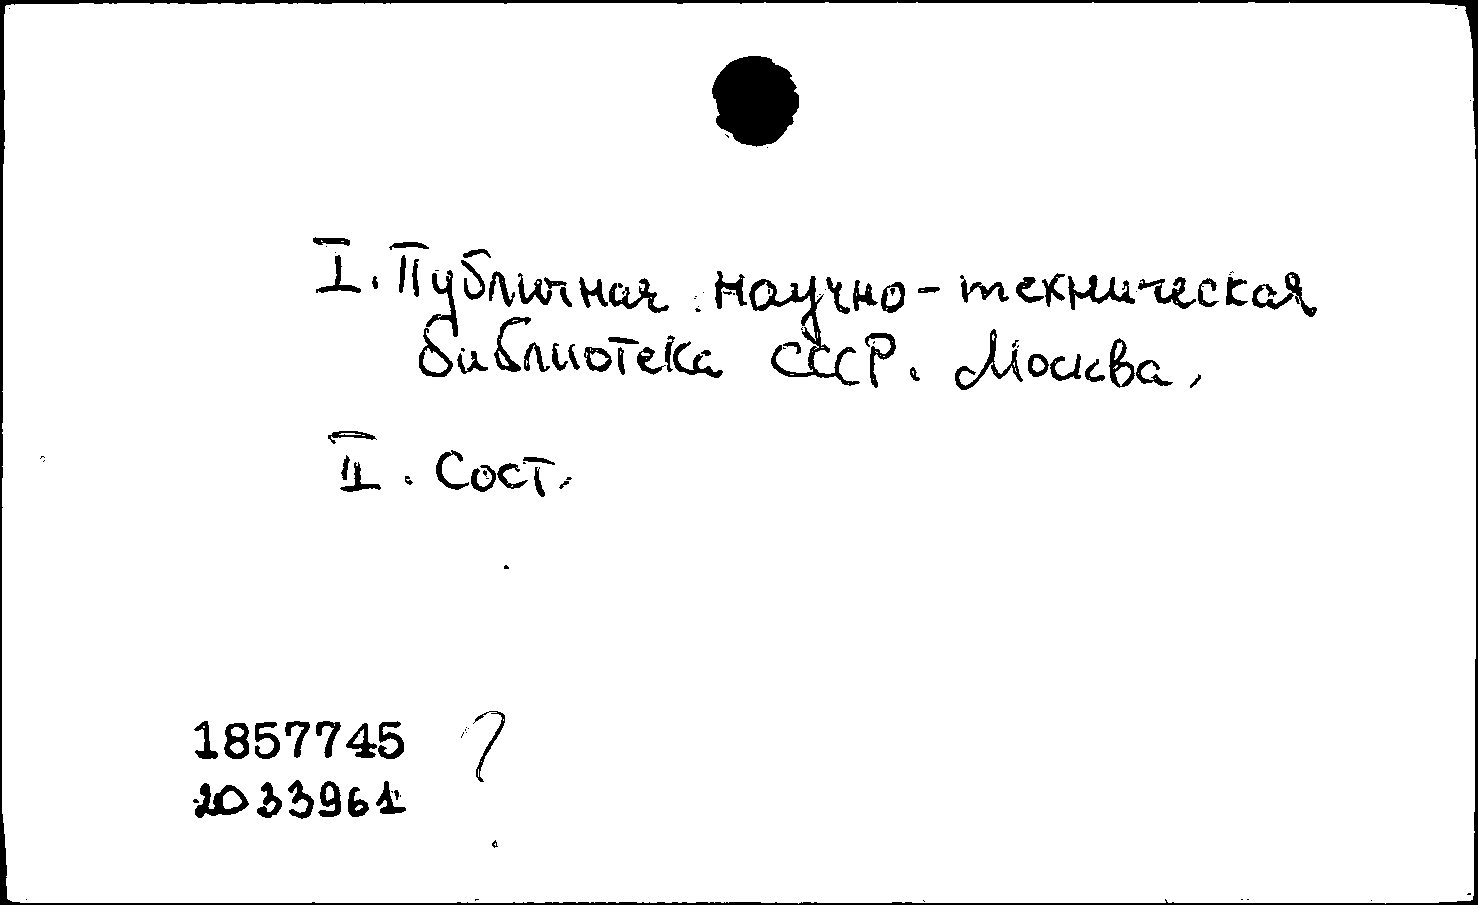 I. Публичная научно-техническая
библиотека СССР. Москва.
II. Сост.
1857745 ?
2033961